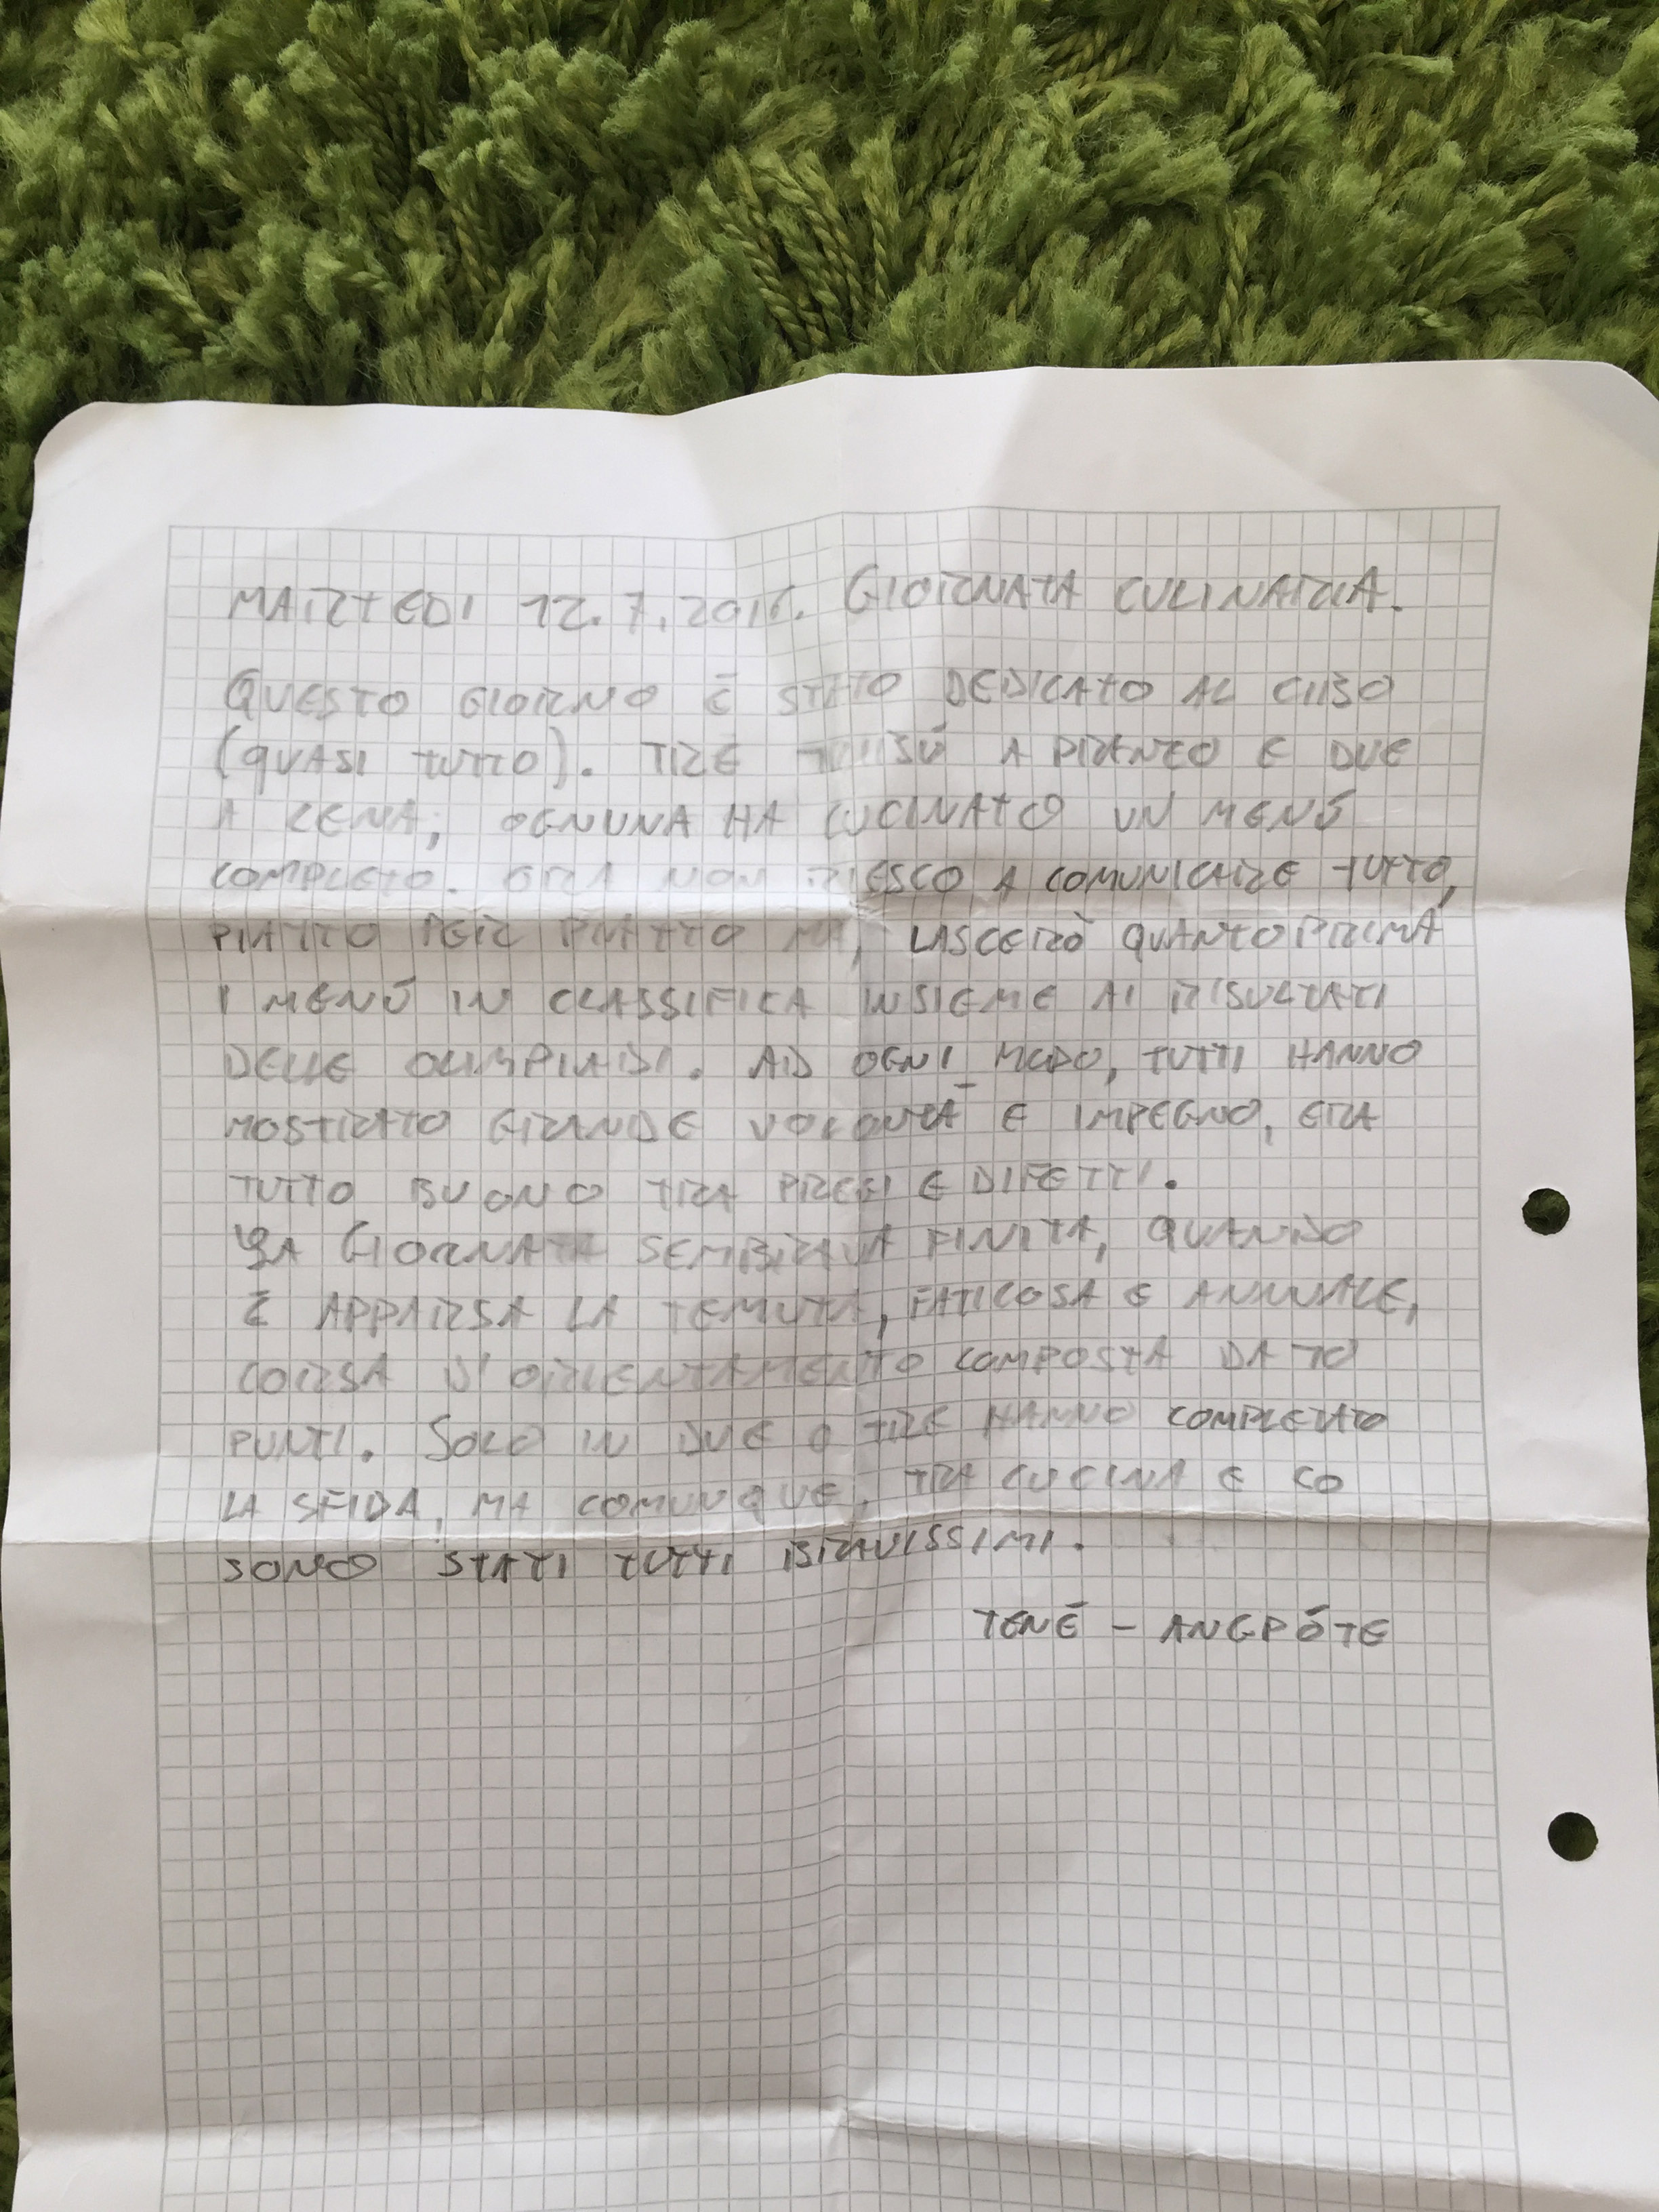 MARTEDI 12.7.2016. GIORNATA CULINARIA.
QUESTO GIORNO È STATO DEDICATO AL CIBO
(QUASI TUTTO). TRE TRIBÚ A PRANZO E DUE
A CENA, OGNUNA HA CUCINATO UN MENÚ
COMPLETO. ORA NON RIESCO A COMUNICARE TUTTO,
PIATTO PER PIATTO MA, LASCERÒ QUANTO PRIMA
I MENÚ IN CLASSIFICA INSIEME AI RISULTATI
DELLE OLIMPIADI. AD OGNI MODO, TUTTI HANNO
MOSTRATO GRANDE VOLONTÀ E IMPEGNO, ERA
TUTTO BUONO TRA PREGI E DIFETTI.
LA GIORNATA SEMBRAVA FINITA, QUANDO
È APPARSA LA TEMUTA, FATICOSA E ANNUALE,
CORSA D'ORIENTAMENTO COMPOSTA DA 70
PUNTI. SOLO IN DUE O TRE HANNO COMPLETATO
LA SFIDA, MA COMUNQUE, TRA CUCINA E CO
SONO STATI TUTTI BRAVISSIMI.
TENÉ - ANGPÓTE